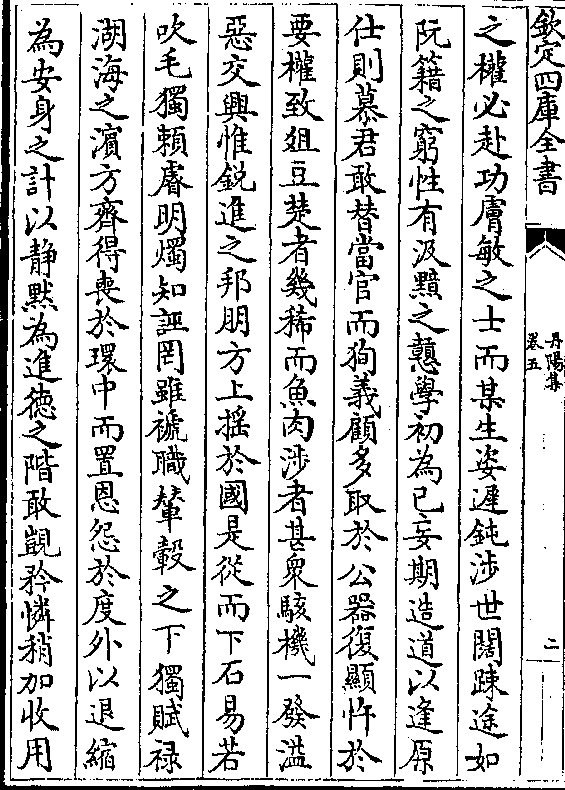 欽定四庫全書
丹陽集
卷五
二
之權必赴功膚敏之士而某生姿遲鈍涉世闊踈途如
阮籍之窮性有汲黯之戇學初為已妄期造道以逢原
仕則慕君敢替當官而狥義顧多取於公器復顯忤於
要權致俎豆楚者幾稀而魚肉涉者甚衆駭機一發溢
惡交興惟銳進之邦朋方上揺於國是從而下石易若
吹毛獨頼睿明燭知誣罔雖褫職輦轂之下獨賦禄
湖海之濵方齊得喪於環中而置恩怨於度外以退縮
為安身之計以静黙為進德之階敢覬矜憐稍加收用